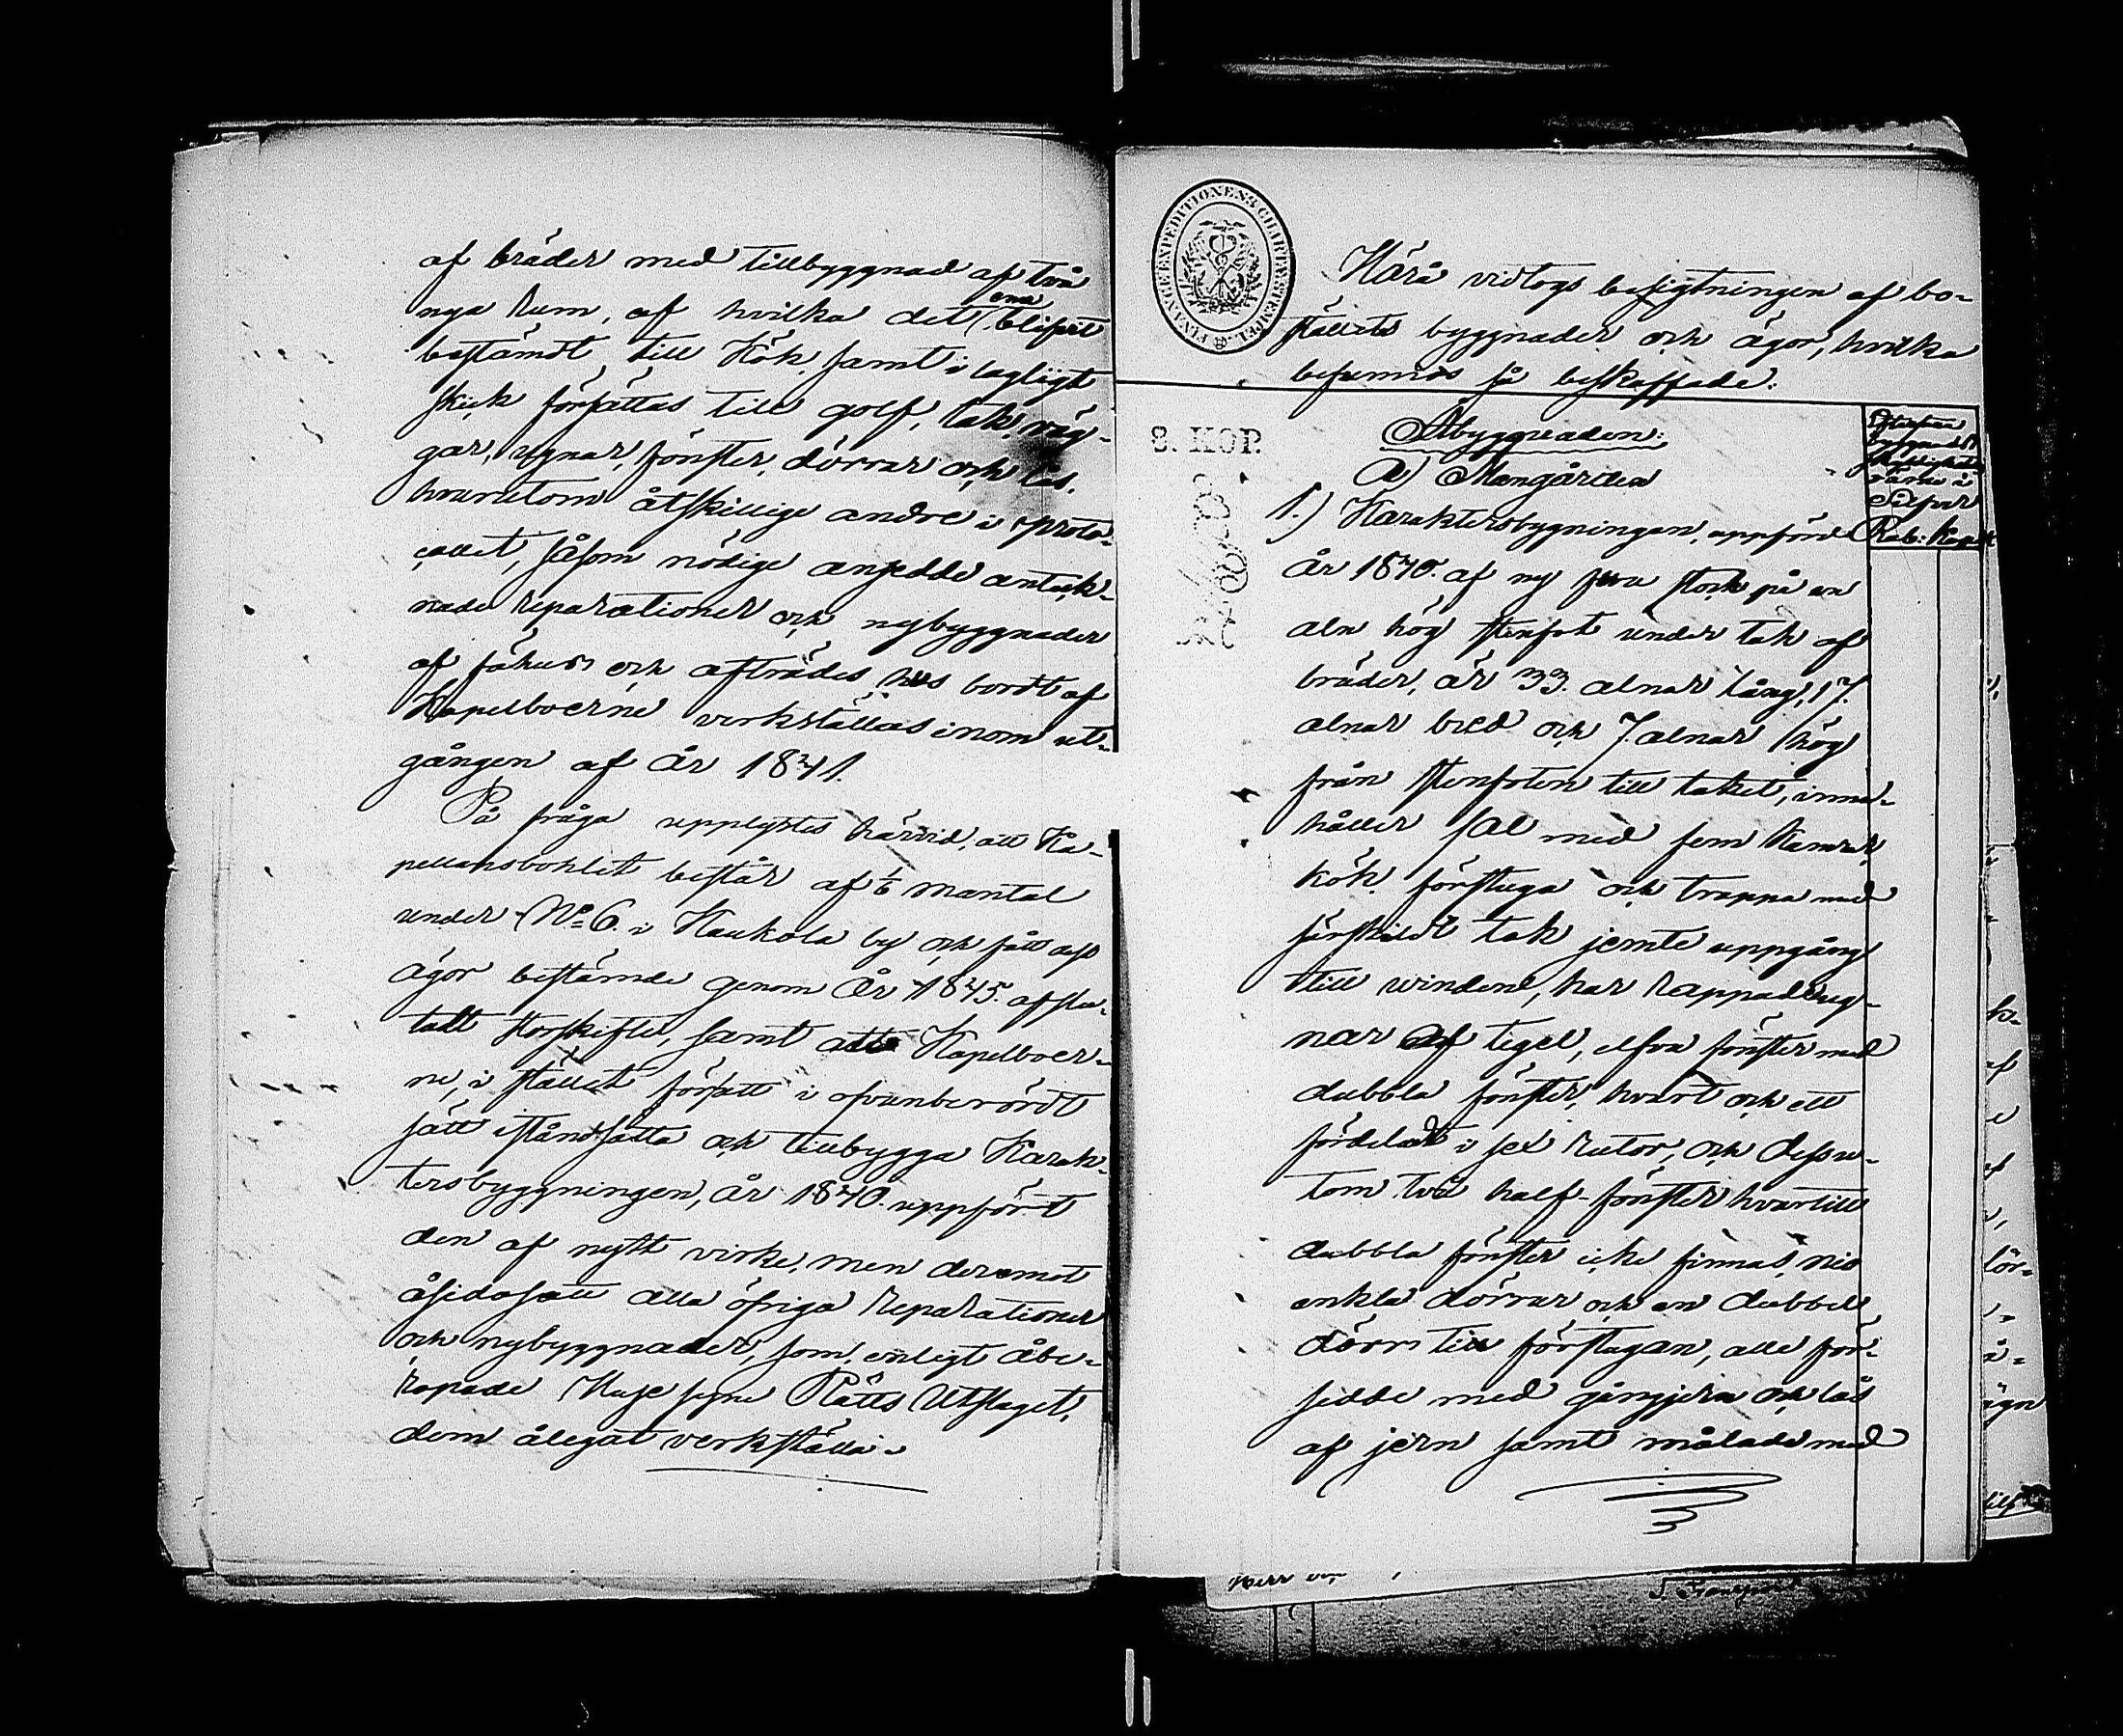 af bräder med tillbyggnad af två
nya rum, af hvilka det ena blifvit
bestämdt till Kök, samt i lagligt
skick försättas till golf, tak, väg-
gar, ugnar, fönster, dörrar och lås,
hvarutom åtskillige andre i proto-
collet, såsom nödige ansedde anteck-
nade reparationer och nybyggnader
af fähus och afträdes hus bordt af
Kapelboerne verkställas inom ut-
gången af år 1841.
På fråga upplystes härvid, att Ka-
pellansbohlet består af 1/6 mantal
under No 6 i Kaukola by och fått
ägor bestämde genom år 1845. afslu-
tadt storskifte, samt att Kapelboer-
ne, i stället för att i ofvanberördt
sätt iståndsätta och tillbygga Karak-
tersbyggningen, år 1840. uppfört
den af nytt virke, men deremot
åsidosatt alla öfriga reparationer
och nybyggnader, som, enligt åbe-
ropade Rätts Utslaget,
dem ålegat verkställa.
FINANCE EXPEDITIONENS CHARTÆ STEMPEL
8. KOP.
Härå vidtogs besigtningen af bo-
ställets byggnader och ägor, hvilka
befunnos så beskaffade:
Åbyggnaden:
a) Mangården
byggnads
värde i
Silfver
Rub: Kop:
1.) Karaktersbygningen, uppförd
år 1840. af ny stock på en
aln hög stenfot under tak af
bräder, är 33. alnar lång, 17.
alnar bred och 7. alnar hög
från stenfoten till taket, inne-
håller sal med fem Kamrar,
kök, förstuga och trappa med
särskildt tak jemte uppgång
till vinden, har rappade ug-
nar af tegel, elfva fönster med
dubbla fönster, hvart och ett
fördeladt i sex rutor, och dessu-
tom två half-fönster hvartill
dubbla fönster icke finnas, nio
enkla dörrar och en dubbel
dörr till förstugan, alle för-
sedde med gångjern och lås
af jern samt målade med